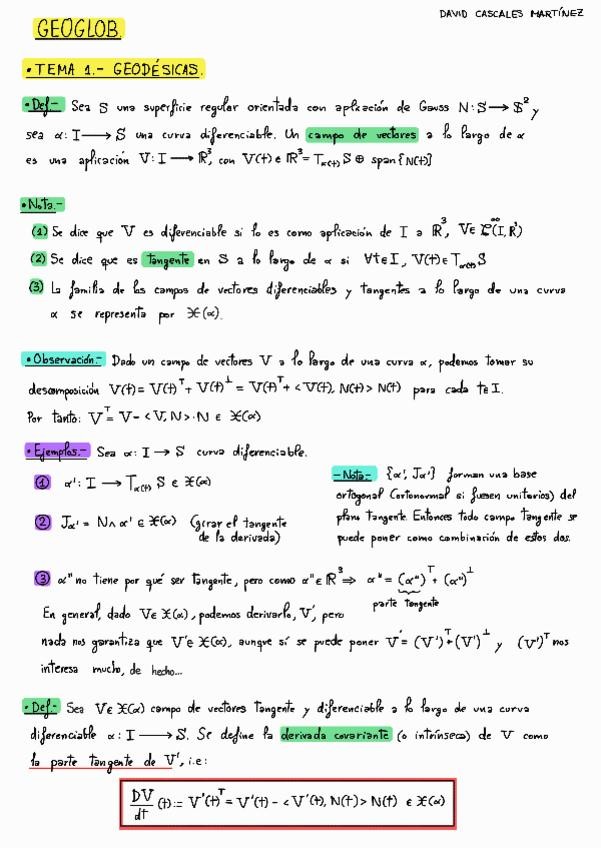 DAVID CASCALES MARTÍNEZ
GEOGLOB.
• TEMA 1.- GEODÉSICAS.
• Def.- Sea S una superficie regular orientada con aplicación de Gauss N: S → 𝕊² y
sea α: I → S una curva diferenciable. Un campo de vectores a lo largo de α
es una aplicación V: I → ℝ³, con V(t) ∈ ℝ³ = T_α(t) S ⊕ span{N(t)}
• Nota.-
(1) Se dice que V es diferenciable si lo es como aplicación de I a ℝ³, V ∈ C^∞(I, ℝ³)
(2) Se dice que es tangente en S a lo largo de α si ∀t ∈ I, V(t) ∈ T_α(t) S
(3) La familia de los campos de vectores diferenciables y tangentes a lo largo de una curva
α se representa por 𝔛(α).
• Observación:- Dado un campo de vectores V a lo largo de una curva α, podemos tomar su
descomposición V(t) = V(t)^⊤ + V(t)^⊥ = V(t)^⊤ + <V(t), N(t)> N(t) para cada t ∈ I.
Por tanto: V^⊤ = V - <V, N>·N ∈ 𝔛(α)
• Ejemplos.- Sea α: I → S curva diferenciable.
① α': I → T_α(t) S ∈ 𝔛(α)
② Jα' = N ∧ α' ∈ 𝔛(α) (girar el tangente
de la derivada)
- Nota:- {α', Jα'} forman una base
ortogonal (ortonormal si fuesen unitarios) del
plano tangente. Entonces todo campo tangente se
puede poner como combinación de estos dos.
③ α'' no tiene por qué ser tangente, pero como α'' ∈ ℝ³ ⇒ α'' = (α'')^⊤ + (α'')^⊥
parte tangente
En general, dado V ∈ 𝔛(α), podemos derivarlo, V', pero
nada nos garantiza que V' ∈ 𝔛(α), aunque sí se puede poner V' = (V')^⊤ + (V')^⊥ y (V')^⊤ nos
interesa mucho, de hecho...
• Def:- Sea V ∈ 𝔛(α) campo de vectores tangente y diferenciable a lo largo de una curva
diferenciable α: I → S. Se define la derivada covariante (o intrínseca) de V como
la parte tangente de V', i.e:
DV/dt (t) := V'(t)^⊤ = V'(t) - <V'(t), N(t)> N(t) ∈ 𝔛(α)